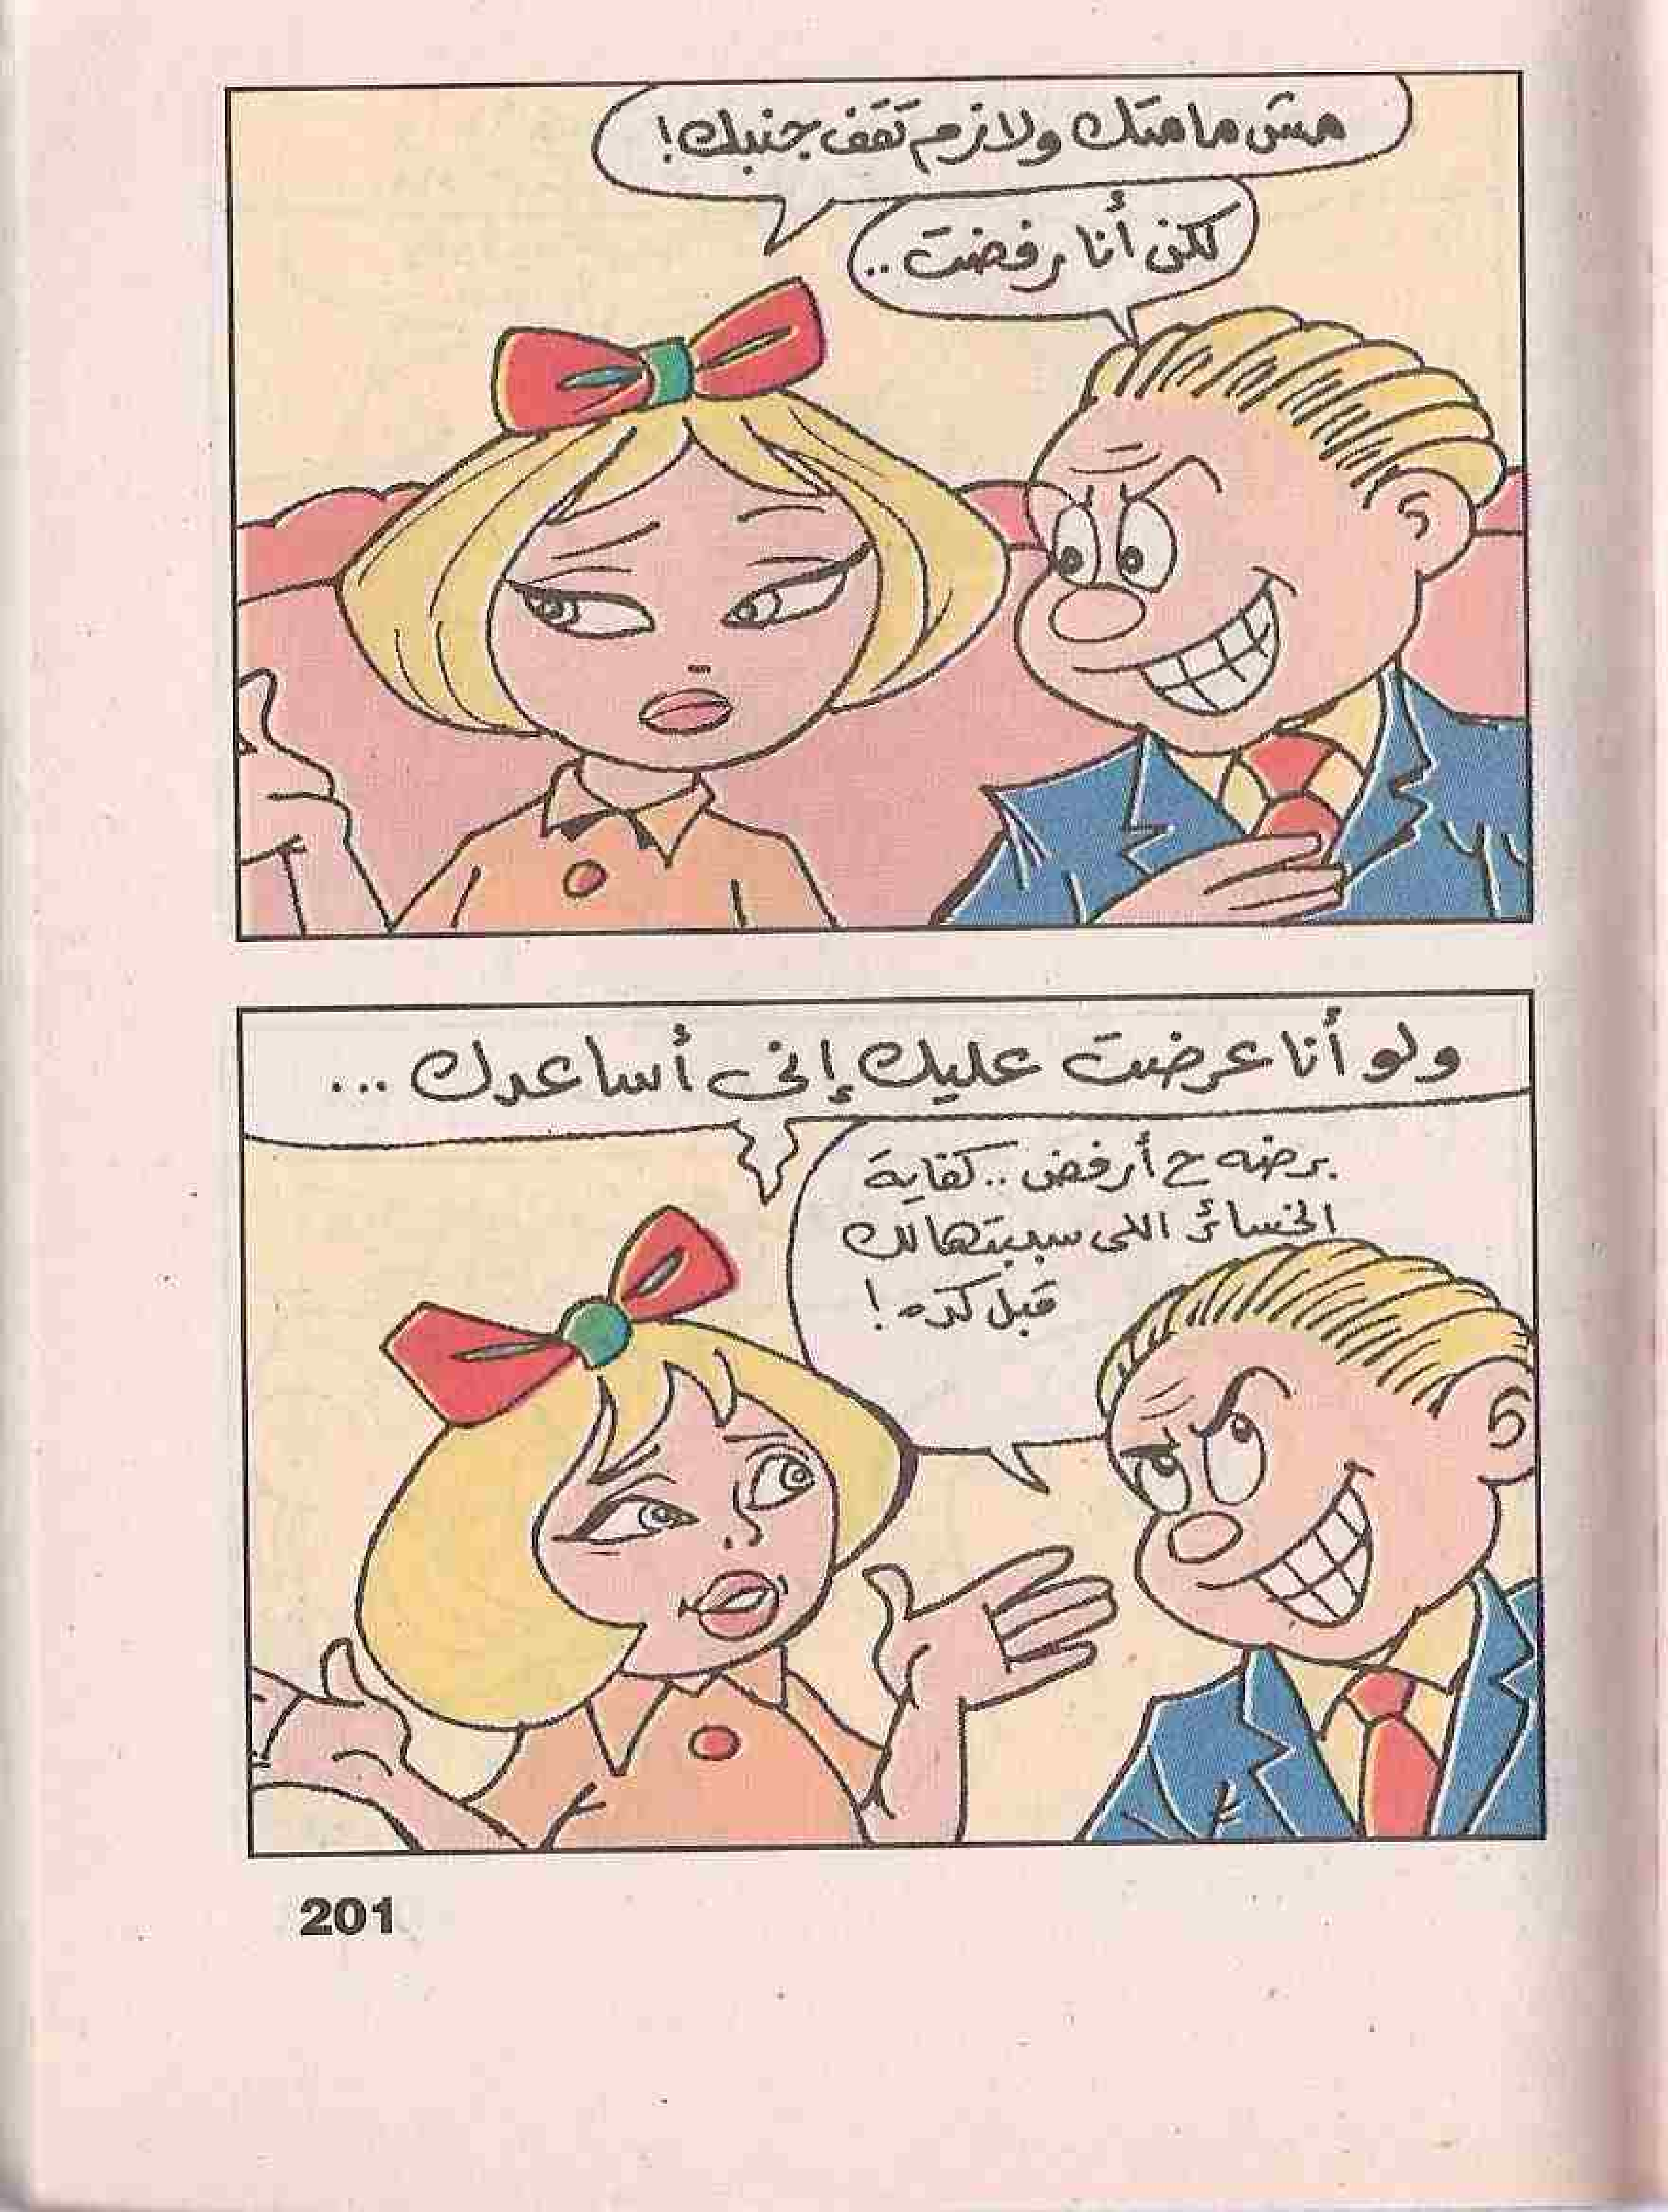 مش مامتك ولازم تقف جنبك!
لكن أنا رفضت..
ولو أنا عرضت عليك إنى أساعدك ...
برضه ح أرفض.. كفاية
الخسائر اللى سببتهالك
قبل كده!
201